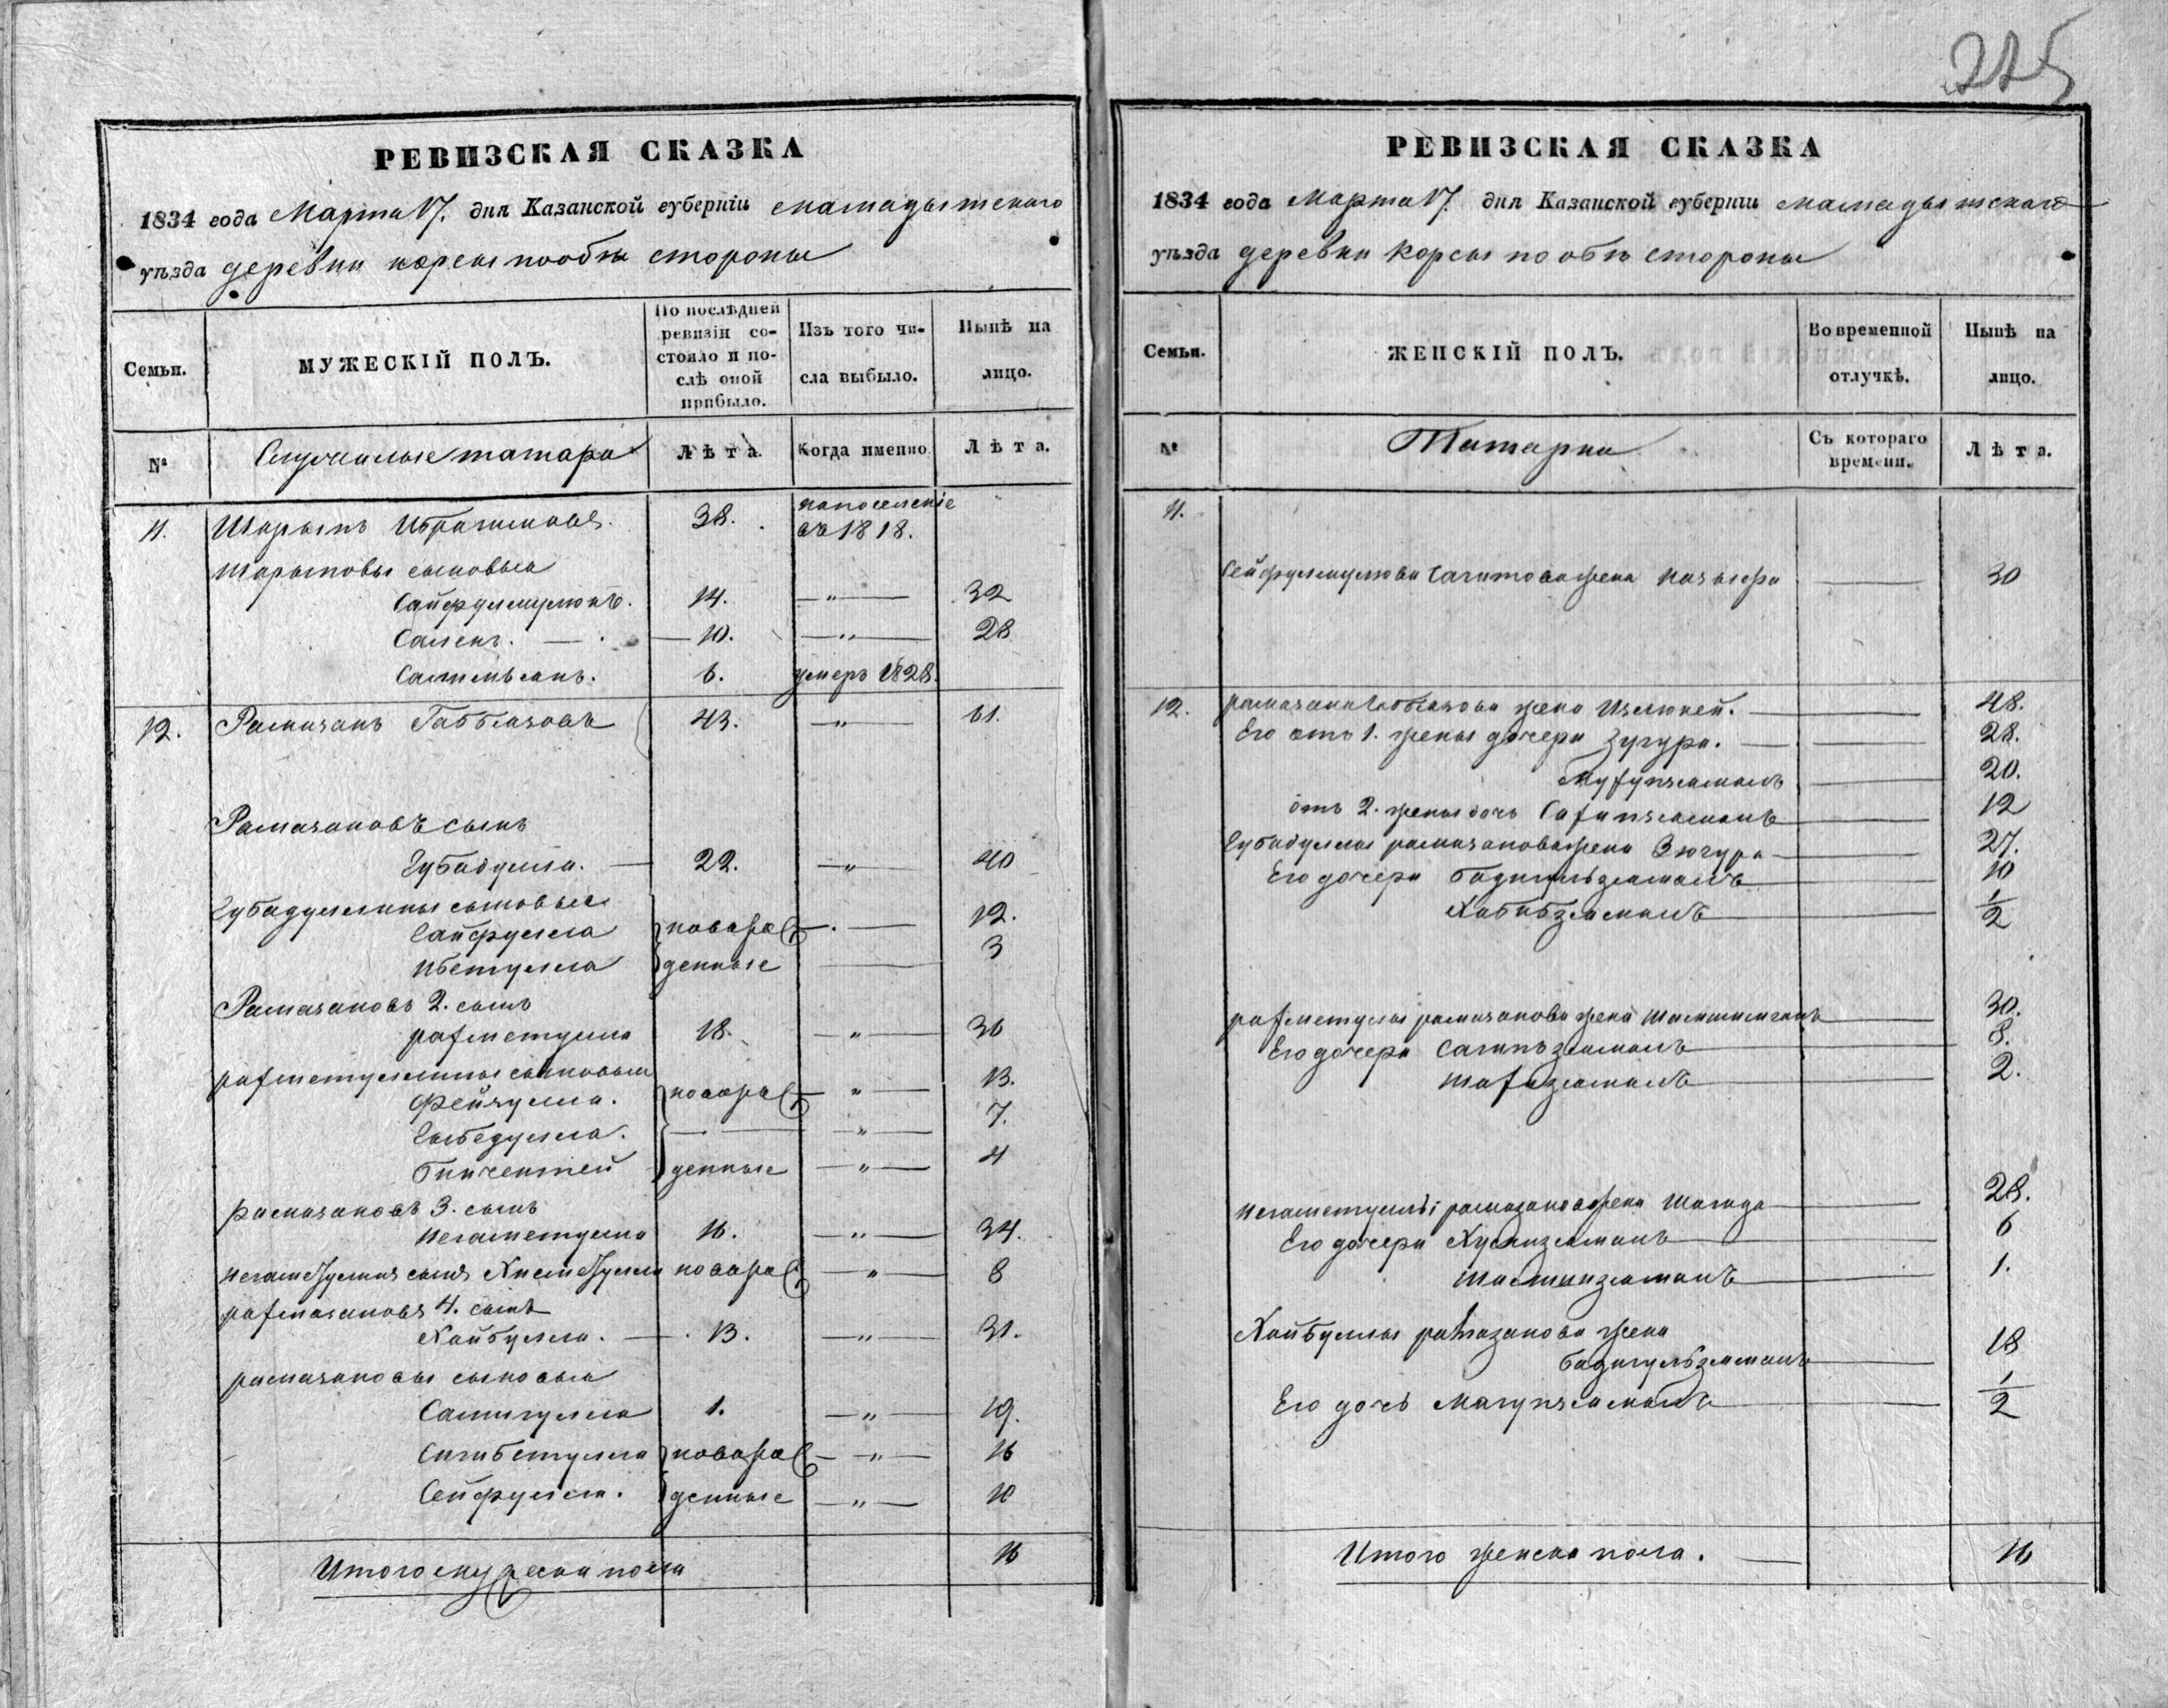 225
РЕВИЗСКАЯ СКАЗКА
1834 года Марта 17. дня Казанской губерніи мамадышскаго
уѣзда деревни корсы по обѣ стороны
Семьи.
МУЖЕСКІЙ ПОЛЪ.
По послѣдней ревизіи со-
стояло и по-
слѣ оной
прибыло.
Изъ того чи-
сла выбыло.
Нынѣ на
лицо.
№
Служилые татара
Лѣта.
Когда именно
Лѣта.
11. Шарыпъ Ибрагимовъ. 38. напоселеніе
въ 1818.
Шарыповы сыновья
14. —"— 32
Салехъ. — 10. —"— 28
6. умеръ 1828.
12. Рамазанъ Габбязовъ 43. —"— 61.
Рамазановъ сынъ
Губадулла. — 22. —"— 40
Губадуллины сыновья
Сайфулла новоро 12.
Ибетулла денные 3
Рамазановъ 2. сынъ
рахметулла 18. —"— 36
рахметуллины сыновья
Фейзулла. новоро —"— 13.
Гыбедулла. —"— 7.
денные —"— 4
рамазановъ 3. сынъ
Негаметулла 16. —"— 34.
новоро —"— 8
рахмазановъ 4. сынъ
Хайбулла. — 13. —"— 31.
рамазановы сыновья
Самигулла 1. —"— 19.
Сигибетулла новоро —"— 16
Сейфулла. денные —"— 10
Итого мужеска пола 16
РЕВИЗСКАЯ СКАЗКА
1834 года Марта 17. дня Казанской губерніи мамадышскаго
уѣзда деревни Корсы по обѣ стороны
Семьи.
ЖЕНСКІЙ ПОЛЪ.
Во временной
отлучкѣ.
Нынѣ на
лицо.
№
Татарки
Съ котораго
времени.
Лѣта.
11.
Сагитова жена 30
12. рамазана Габбязова жена 48.
Его отъ 1. жены дочери Зугура. 28.
20.
отъ 2. жены дочь 12
Губадуллы рамазанова жена Зюгура 27.
Его дочери Бадигульзямалъ 10
Хабибзямалъ 1/2
рахметуллы рамазанова жена 30.
Его дочери Сагипзямалъ 8.
Шафизямалъ 2.
Негаметуллы рамазанова жена Шагида 28.
Его дочери Хуснизямалъ 6
Шамшизямалъ 1.
Хайбуллы рамазанова жена
Бадигульзямалъ 18
Его дочь Магупзямалъ 1/2
Итого женска пола. — 16